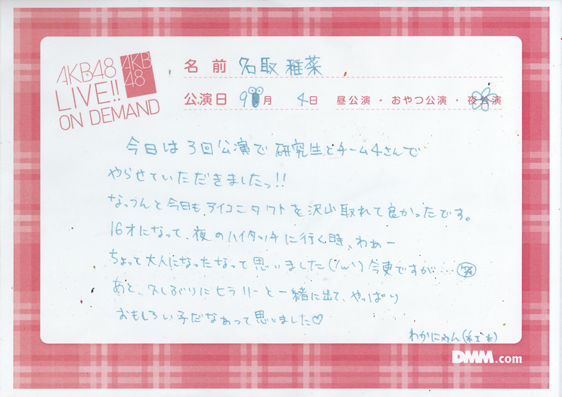 AKB48
LIVE!!
ON DEMAND
AKB
48
名前 名取稚菜
公演日 9月 4日 昼公演・おやつ公演・夜公演
今日は3回公演で研究生とチーム4さんで
やらせていただきましたっ!!
なっつんと今日もアイコンタクトを沢山取れて良かったです。
16才になって、夜のハイタッチに行く時、わぁー
ちょって大人になったなって思いました 今更ですが…
あと、久しぶりにヒラリーと一緒に出て、やっぱり
おもしろい子だなあって思いました♡
わかにゃん
DMM.com